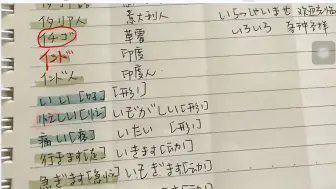 イタリア人 意大利人 いらっしゃいませ
イチゴ 草莓 いろいろ
インド 印度
インド人 印度人
いい[好] [形1]
忙しい[忙] いそがしい[形1]
痛い[疼] いたい [形1]
行きます[去] いきます[动1]
急ぎます[急忙] いそぎます[动1]
[动1]